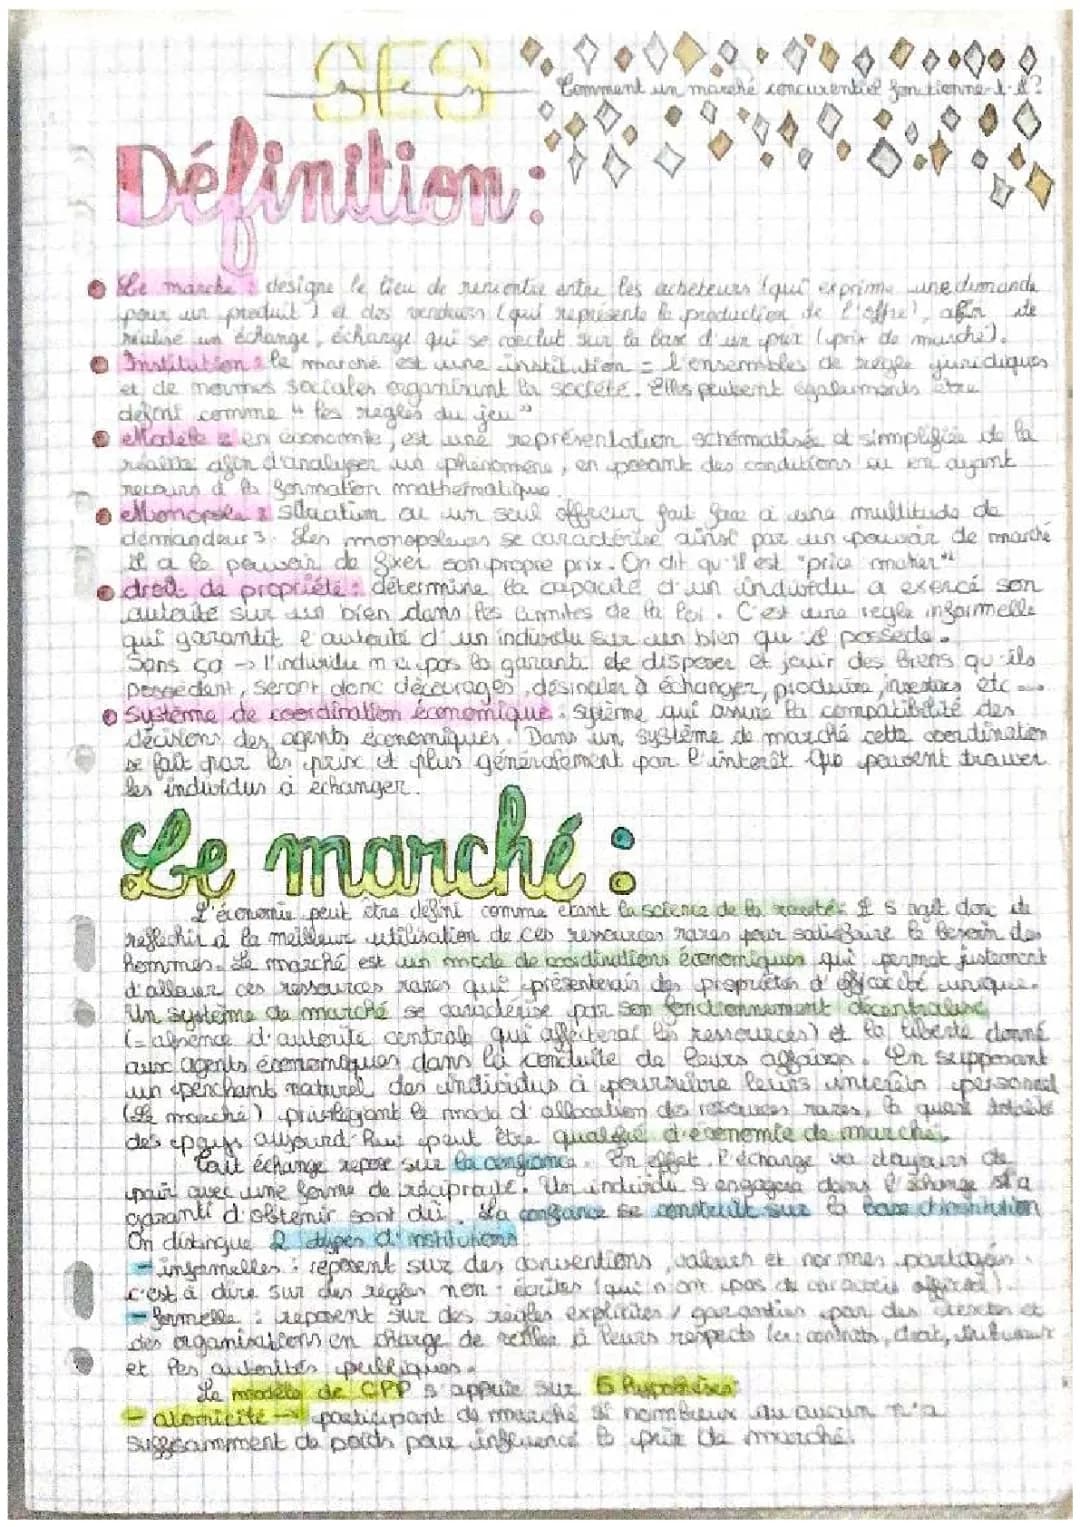 SES
Comment un marché concurentiel fonctionne-t-il?
Définition:
Le marché : désigne le lieu de rencontre entre les acheteurs (qui exprime une demande
pour un produit) et des vendeurs (qui représente la production de l'offre), afin de
réalise un échange, échange qui se conclut sur la base d'un prix (prix de marché).
Institution : le marché est une institution = l'ensembles de règle juridiques
et de normes sociales organisant la société. Elles peuvent également être
défini comme "les règles du jeu"
Modèle : en économie, est une représentation schématisée et simplifiée de la
réalité afin d'analyser un phénomène, en posant des conditions ou en ayant
recours à la formation mathématique.
Monopole : situation ou un seul offreur fait face à une multitude de
demandeurs. Les monopoleurs se caractérise ainsi par un pouvoir de marché
il a le pouvoir de fixer son propre prix. On dit qu'il est "price maker"
droit de propriété : détermine la capacité d'un individu a exercé son
autorité sur un bien dans les limites de la loi. C'est une regle informelle
qui garantit l'autorité d'un individu sur un bien qu'il possède.
Sans ça → l'individu n'a pas la garanti de disposer et jouir des biens qu'ils
possèdent, seront donc découragés, désinciter à échanger, produire, investir etc ...
Système de coordination économique : système qui assure la compatibilité des
décisions des agents économiques. Dans un système de marché cette coordination
se fait par les prix et plus généralement par l'intérêt que peuvent trouver
les individus à échanger.
Le marché :
L'économie peut être défini comme étant la science de la rareté. Il s'agit donc de
réfléchir à la meilleur utilisation de ces ressources rares pour satisfaire le besoin des
hommes. Le marché est un mode de coordinations économiques qui permet justement
d'allouer ces ressources rares qui présenterais des propriétés d'efficacité unique.
Un système de marché se caractérise par son fonctionnement décentralisé
(= absence d'autorité centrale qui affecterai les ressources) et la liberté donné
aux agents économiques dans la conduite de leurs affaires. En supposant
un penchant naturel des individus à poursuivre leurs intérêts personnel
(le marché) privilégiant le mode d'allocation des ressources rares, la quasi totalité
des pays aujourd'hui peut être qualifié d'économie de marché.
Tout échange repose sur la confiance. En effet, l'échange va toujours de
pair avec une forme de réciprocité. Un individu s'engagera dans l'échange s'il a
garanti d'obtenir sont dû. La confiance se construit sur la base d'institution
On distingue 2 types d'institutions
- informelles : reposent sur des conventions, valeurs et normes partagées.
c'est à dire sur des règles non-écrites (qui n'ont pas de caractère officiel).
- formelle : reposent sur des règles explicites / garanties par des textes et
des organisations en charge de veiller à leurs respects (ex: contrats, état, tribunaux
et les autorités publiques.
Le modèle de CPP s'appuie sur 5 hypothèses:
- atomicité → participant de marché si nombreux qu'aucun n'a
suffisamment de poids pour influencé le prix de marché.